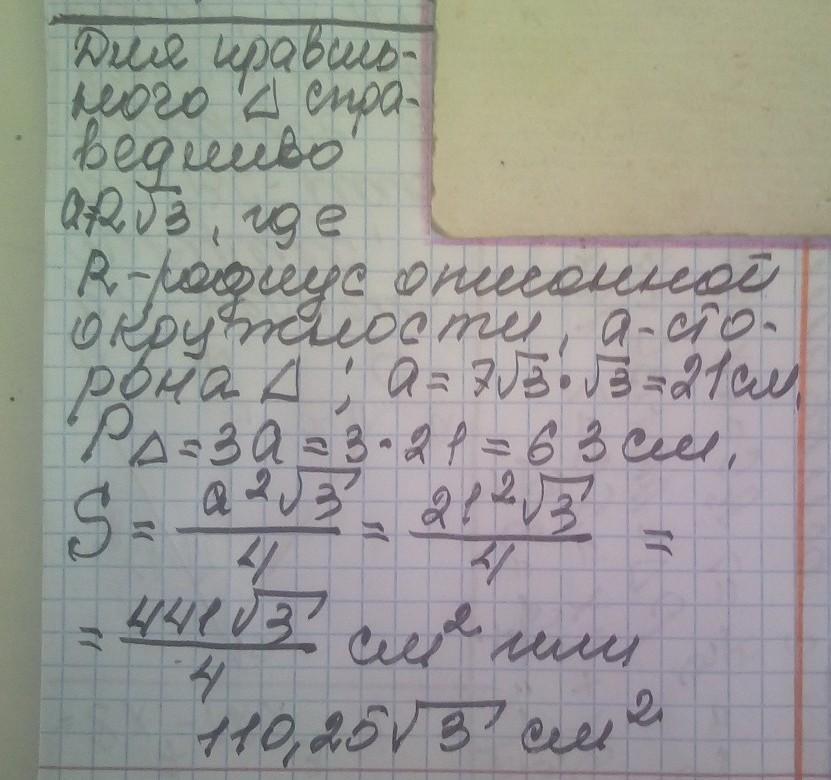 Для правиль-
ного Δ спра-
ведливо
a=R√3, где
R-радиус описанной
окружности, a-сто-
рона Δ; a = 7√3 · √3 = 21 см,
P_Δ = 3a = 3 · 21 = 63 см,
S = a²√3/4 = 21²√3/4 =
= 441√3/4 см² или
110,25√3 см²